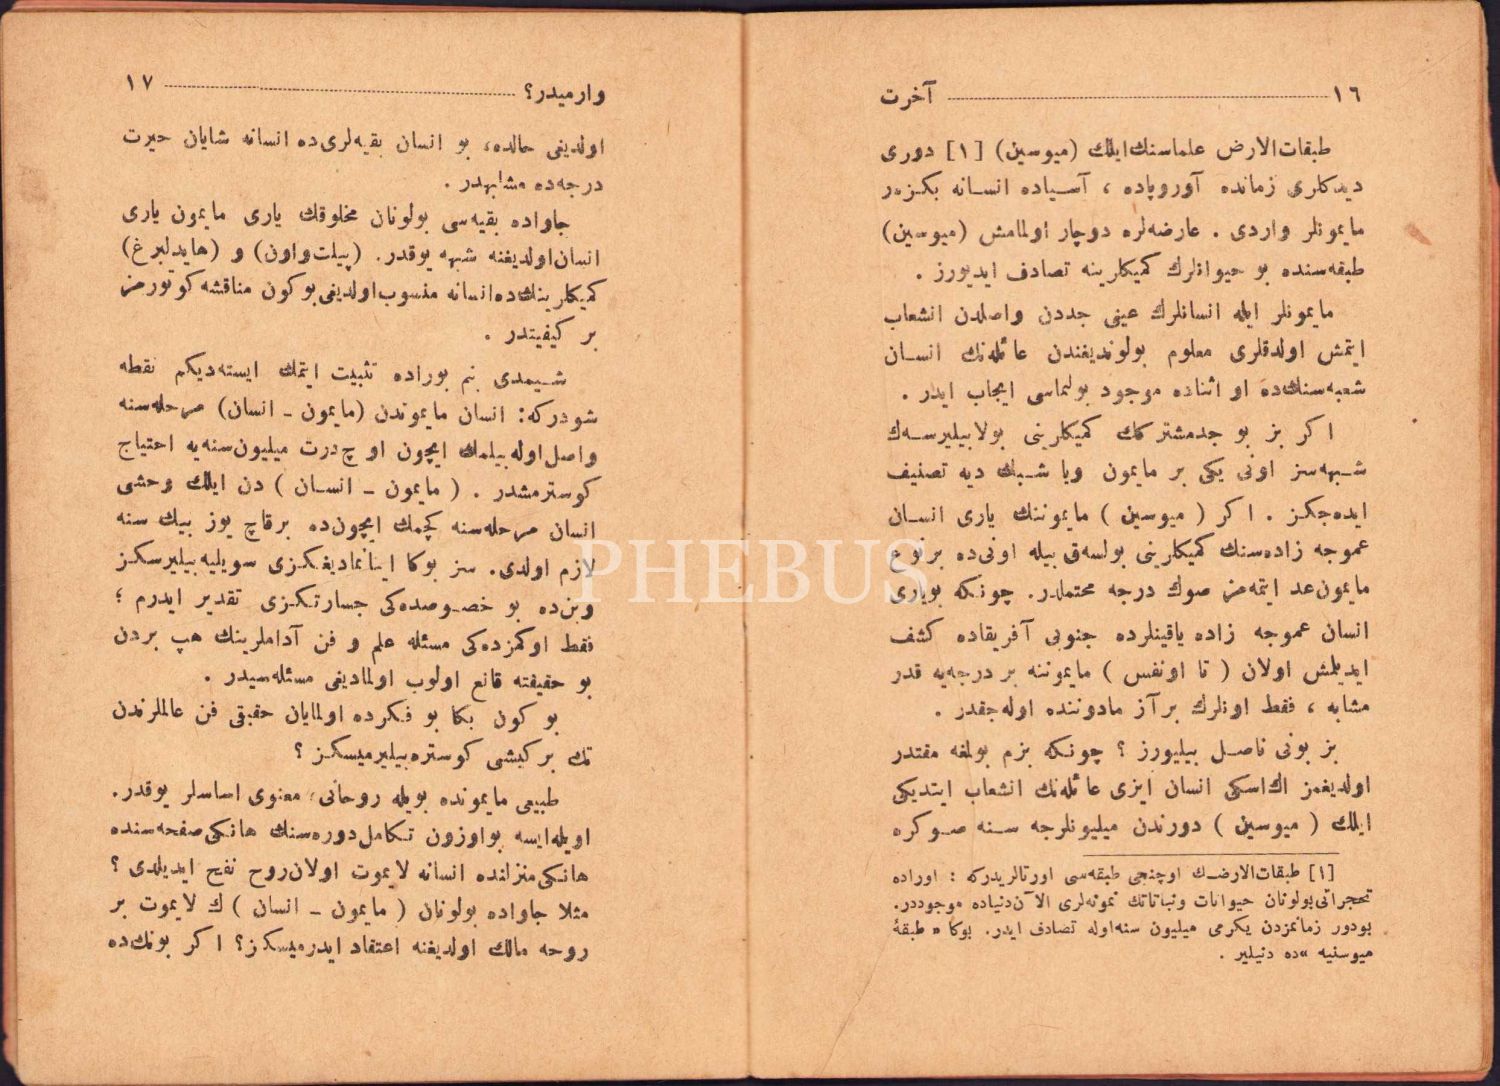 ١٦ آخرت
طبقات‌الارض علماسنك ایلك (میوسین) [١] دوری
دیدكلری زمانده آوروپاده ، آسیاده انسانه بكزەر
مایمونلر واردی . عارضه‌لره دوچار اولمامش (میوسین)
طبقه‌سنده بو حیوانلرك كمیكلرینه تصادف ایدیورز .
مایمونلر ایله انسانلرك عینی جددن واصلدن انشعاب
ایتمش اولدقلری معلوم بولوندیغندن عائله‌نك انسان
شعبه‌سنك‌ده او اثناده موجود بولنماسی ایجاب ایدر .
اكر بز بو جدمشتركك كمیكلرینی بولابیلیرسه‌ك
شبهه‌سز اونی یكی بر مایمون ویا شبك دیه تصنیف
ایده‌جكز . اكر ( میوسین ) مایموننك یاری انسان
عموجه زاده‌سنك كمیكلرینی بولسه‌ق بیله اونی‌ده برنوع
مایمون‌عد ایتمه‌مز صوك درجه محتملدر. چونكه بویاری
انسان عموجه زاده یاقینلرده جنوبی آفریقاده كشف
ایدیلمش اولان ( تا اونغس ) مایموننه بر درجه‌یه قدر
مشابه ، فقط اونلرك برآز مادوننده اوله‌جقدر .
بز بونی ناصل بیلیورز ؟ چونكه بزم بولمغه مقتدر
اولدیغمز اك‌اسكی انسان ایزی عائله‌نك انشعاب ایتدیكی
ایلك ( میوسین ) دورندن میلیونلرجه سنه صوكره
[١] طبقات‌الارضك اوچنجی طبقه‌سی اورتالریدركه : اوراده
تحجراتی‌بولونان حیوانات ونباتاتك نمونه‌لری الآن‌دنیاده موجوددر.
بودور زمانمزدن یكرمی میلیون سنه‌اوله تصادف ایدر. بوكا « طبقهٔ
میوسنیه »ده دنیلیر .
وارمیدر؟ ١٧
اولدیغی حالده، بو انسان بقیه‌لری‌ده انسانه شایان حیرت
درجه‌ده مشابهدر .
جاواده بقیه‌سی بولونان مخلوقك یاری مایمون یاری
انسان‌اولدیغنه شبهه یوقدر. (پیلت‌داون) و (هایدلبرغ)
كمیكلرینك‌ده‌انسانه منسوب‌اولدیغی‌بوكون مناقشه كوتورمز
بر كیفیتدر .
شیمدی بنم بوراده تثبیت ایتمك ایسته‌دیكم نقطه
شودركه: انسان مایموندن (مایمون ـ انسان) مرحله‌سنه
واصل‌اوله‌بیلمك ایچون اوچ‌درت میلیون‌سنه‌یه احتیاج
كوسترمشدر . ( مایمون ـ انسان ) دن ایلك وحشی
انسان مرحله‌سنه كچمك ایچون‌ده برقاچ یوز بیك سنه
لازم اولدی. سز بوكا اینانمادیغكزی سویلیه‌بیلیرسكز
وبن‌ده بو خصوصده‌كی جسارتكزی تقدیر ایدرم ؛
فقط اوكمزده‌كی مسئله علم و فن آداملرینك هپ بردن
بو حقیقته قانع اولوب اولمادیغی مسئله‌سیدر .
بو كون بكا بو فكرده اولمایان حقیقی فن عالملرندن
تك بركیشی كوستره‌بیلیرمیسكز ؟
طبیعی مایمونده بویله روحانی، معنوی اساسلر یوقدر.
اویله‌ایسه بواوزون تكامل‌دوره‌سنك هانكی‌صفحه‌سنده
هانكی‌منزلنده انسانه لایموت اولان‌روح نفخ ایدیلدی ؟
مثلا جاواده بولونان ( مایمون ـ انسان ) ك لایموت بر
روحه مالك اولدیغنه اعتقاد ایدرمیسكز؟ اكر بونك‌ده
PHEBUS